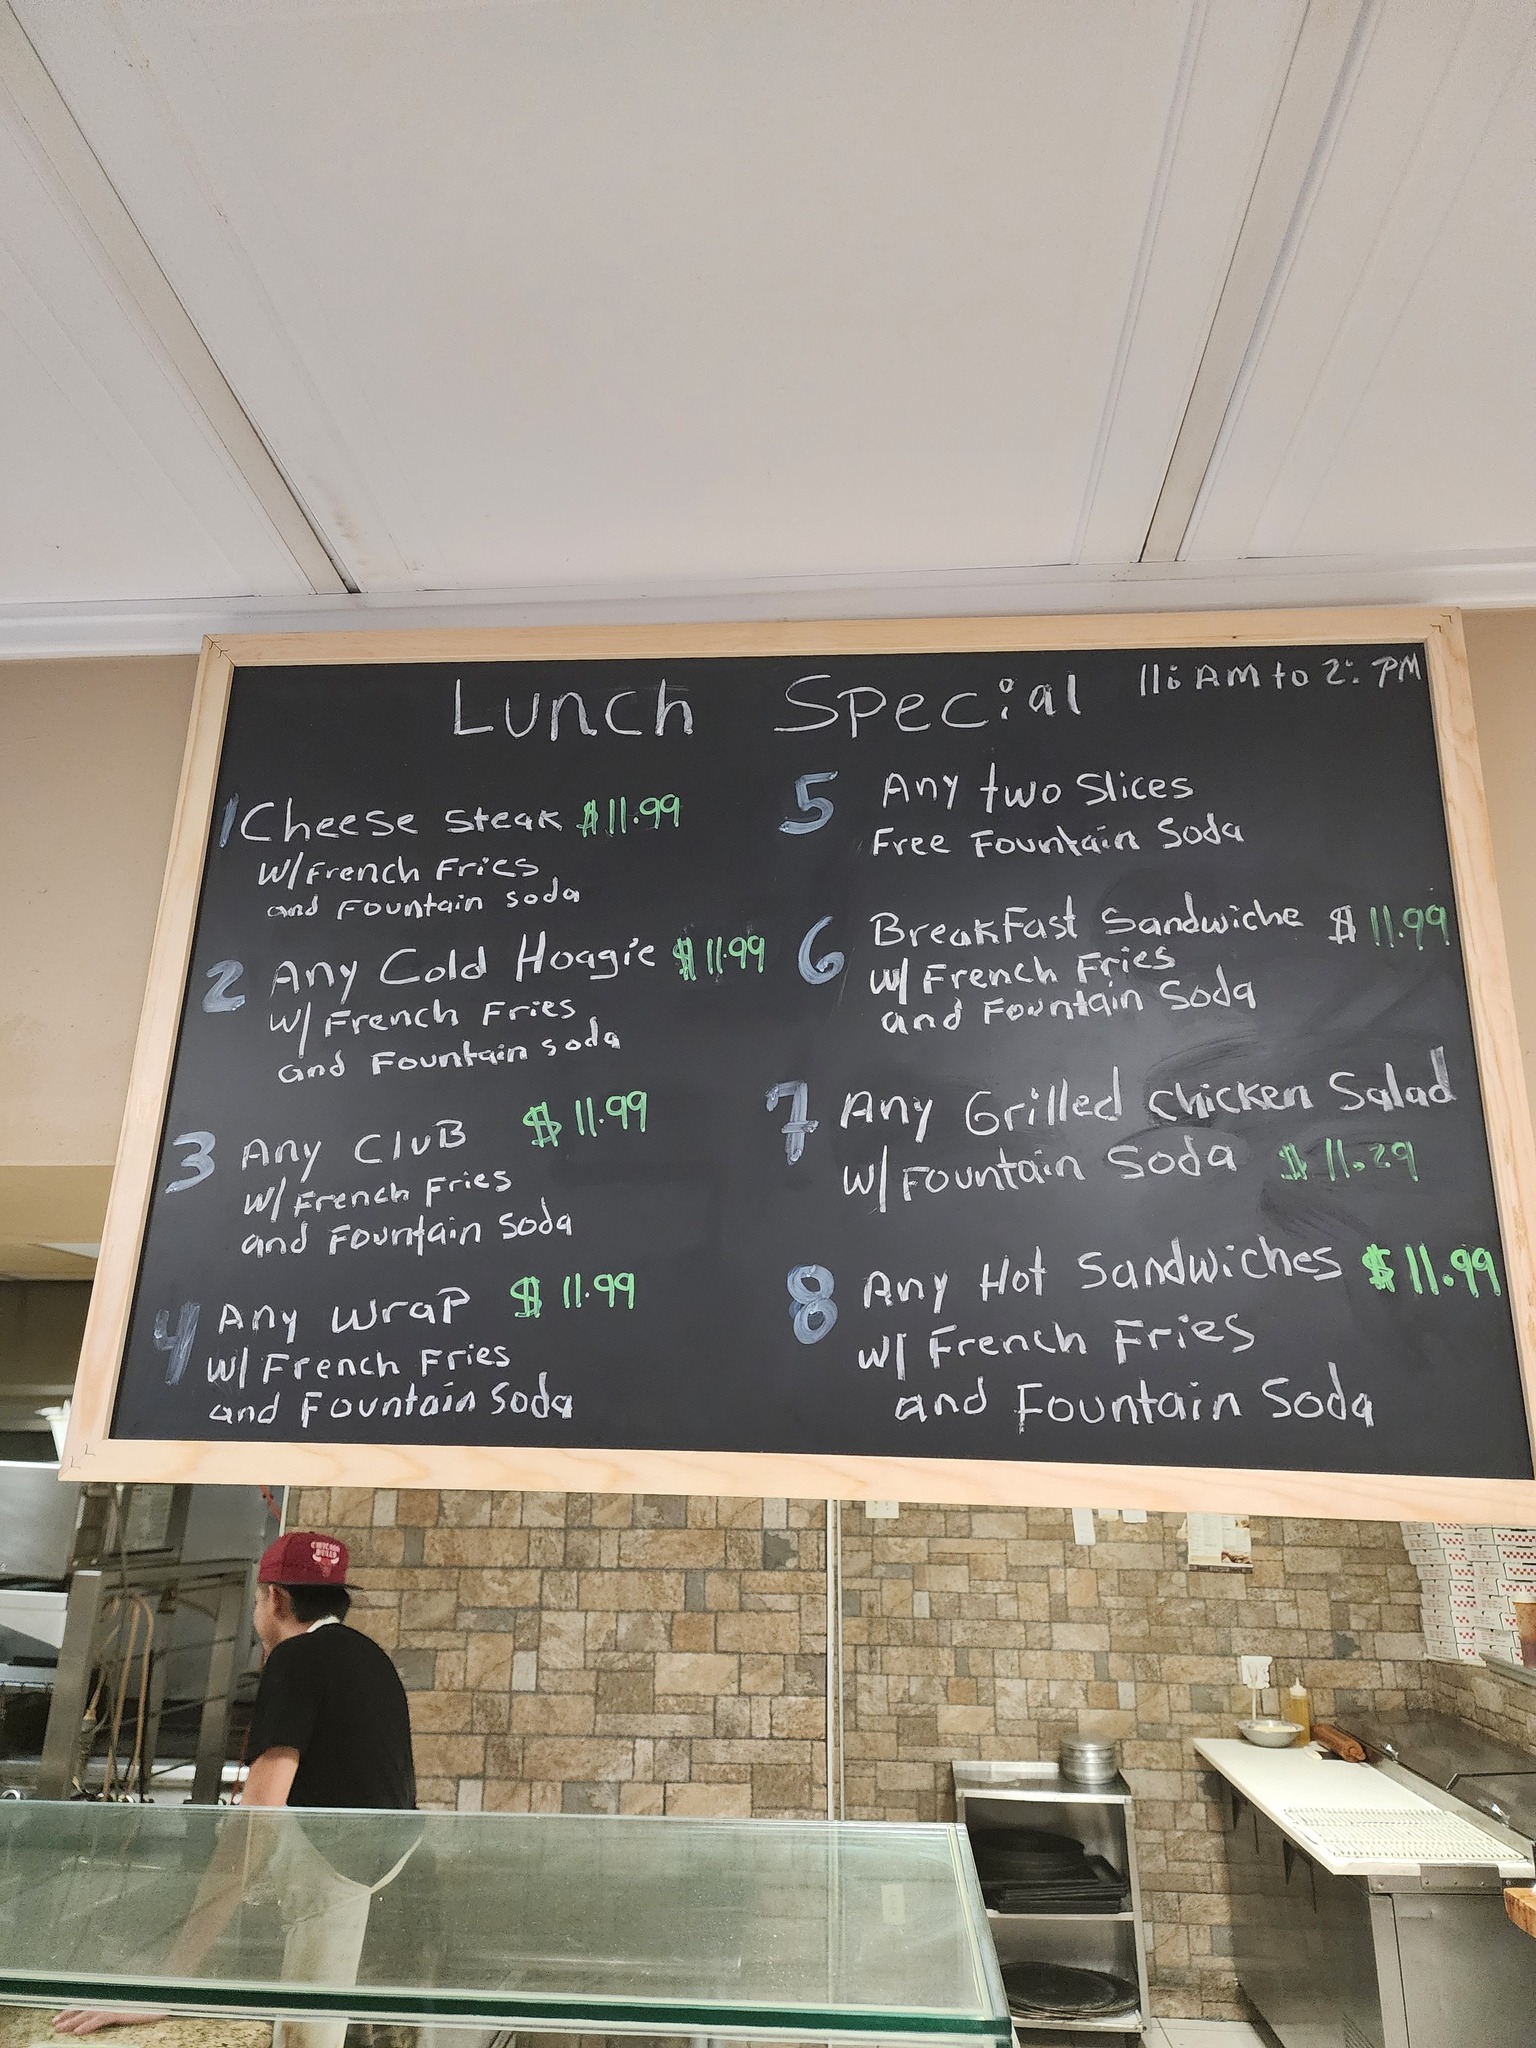 Lunch Special 11:AM to 2: PM
1 Cheese Steak $11.99
W/French Fries
and Fountain soda
2 Any Cold Hoagie $11.99
W/ French Fries
and Fountain soda
3 Any Club $11.99
W/ French Fries
and Fountain Soda
4 Any Wrap $11.99
W/ French Fries
and Fountain Soda
5 Any two Slices
Free Fountain Soda
6 BreakFast Sandwiche $11.99
W/ French Fries
and Fountain Soda
7 Any Grilled Chicken Salad
W/ Fountain Soda $11.29
8 Any Hot Sandwiches $11.99
W/ French Fries
and Fountain Soda
CHICAGO
BULLS